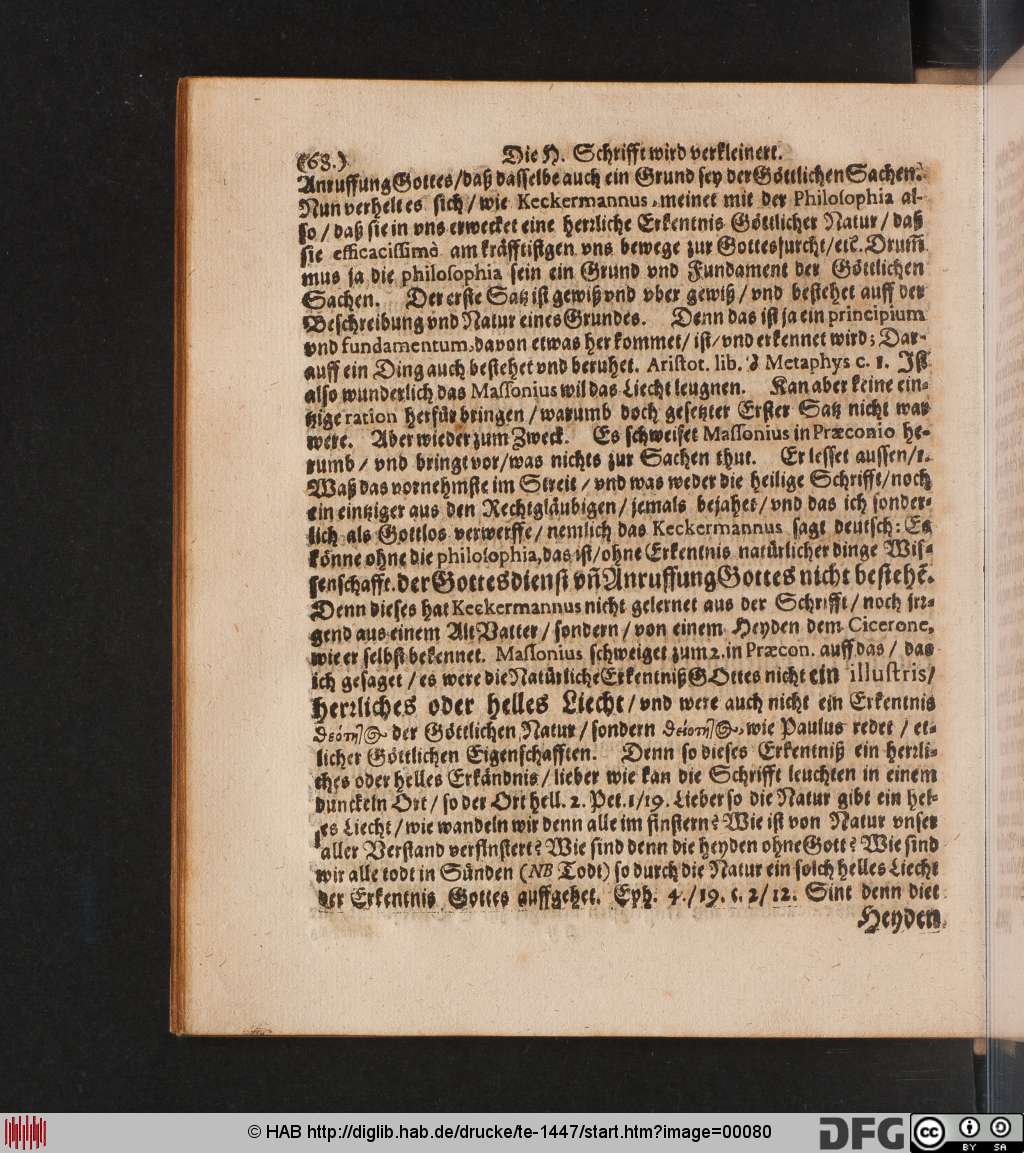 (68.) Die H. Schrifft wird verkleinert.
Anruffung Gottes/daß dasselbe auch ein Grund sey der Göttlichen Sachen.
Nun verhelt es sich/wie Keckermannus, meinet mit der Philosophia al-
so/daß sie in vns erwecket eine herꝛliche Erkentnis Göttlicher Natur/daß
sie efficacissimè am kräfftistgen vns bewege zur Gottesfurcht/etc̃. Drum̃
mus ja die philosophia sein ein Grund vnd Fundament der Göttlichen
Sachen. Der erste Satz ist gewiß vnd vber gewiß/vnd bestehet auff der
Beschreibung vnd Natur eines Grundes. Denn das ist ja ein principium
vnd fundamentum, davon etwas her kommet/ist/vnd erkennet wird; Dar-
auff ein Ding auch bestehet vnd beruhet. Aristot. lib. Metaphys c. 1. Ist
also wunderlich das Massonius wil das Liecht leugnen. Kan aber keine ein-
tzige ration herfür bringen/warumb doch gesetzter Erster Satz nicht war
were. Aber wieder zum Zweck. Es schweifet Massonius in Præconio he-
rumb/vnd bringt vor/was nichts zur Sachen thut. Er lesset aussen/1.
Waß das vornehmste im Streit/vnd was weder die heilige Schrifft/noch
ein eintziger aus den Rechtgläubigen/jemals bejahet/vnd das ich sonder-
lich als Gottlos verwerffe/nemlich das Keckermannus sagt deutsch: Es
könne ohne die philosophia, das ist/ohne Erkentnis natürlicher dinge Wis-
senschafft. der Gottesdienst vñ Anruffung Gottes nicht bestehẽ.
Denn dieses hat Keckermannus nicht gelernet aus der Schrifft/noch jrꝛ-
gend aus einem Alt Vatter/sondern/von einem Heyden dem Cicerone,
wie er selbst bekennet. Massonius schweiget zum 2. in Præcon. auff das/das
ich gesaget/es were die Natürliche Erkentniß GOttes nicht ein illustris/
herꝛliches oder helles Liecht/vnd were auch nicht ein Erkentnis
θεότητος der Göttlichen Natur/sondern θειότητος, wie Paulus redet/et-
licher Göttlichen Eigenschafften. Denn so dieses Erkentniß ein herꝛli-
ches oder helles Erkändnis/lieber wie kan die Schrifft leuchten in einem
dunckeln Ort/so der Ort hell. 2. Pet. 1/19. Lieber so die Natur gibt ein hel-
les Liecht/wie wandeln wir denn alle im finstern? Wie ist von Natur vnser
aller Verstand verfinstert? Wie sind denn die heyden ohne Gott? Wie sind
wir alle todt in Sünden (NB Todt) so durch die Natur ein solch helles Liecht
der Erkentnis Gottes auffgehet. Eph. 4./19. c. 2/12. Sint denn diet
Heyden
© HAB http://diglib.hab.de/drucke/te-1447/start.htm?image=00080
DFG
cc BY SA